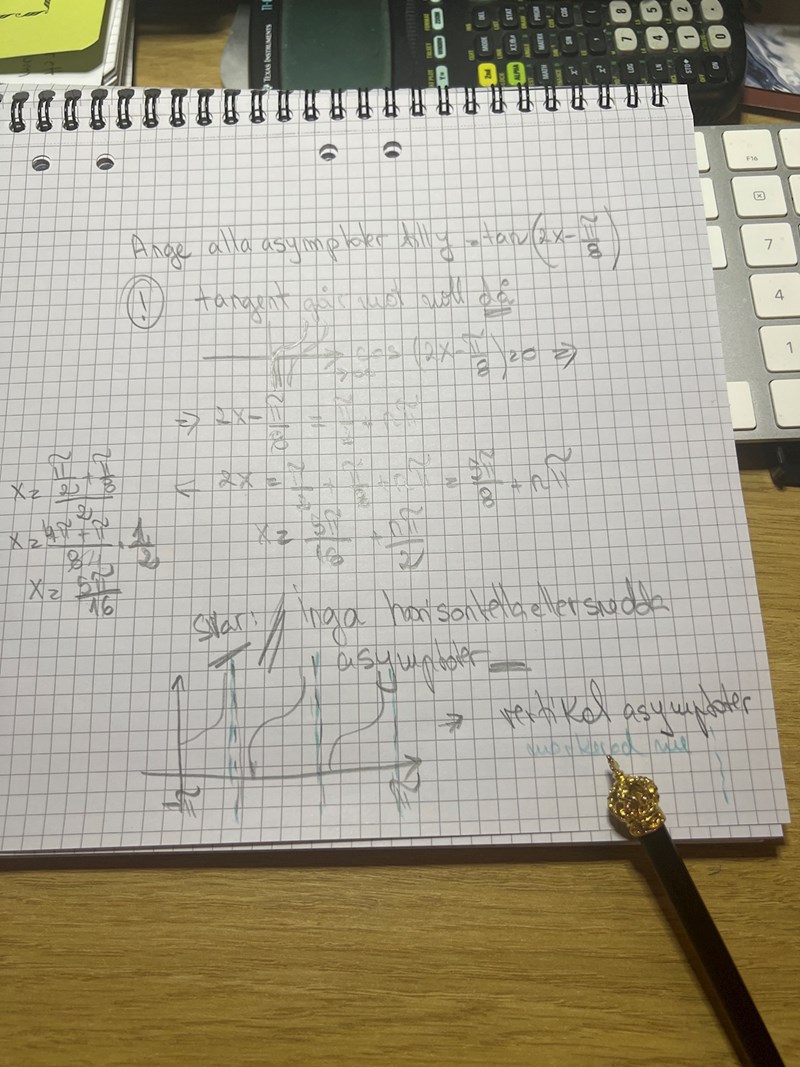 TEXAS INSTRUMENTS
F16
7
4
1
Ange alla asymptoter till y = tan(2x-π/8)
! tangent går mot noll då
cos (2x-π/8)=0 ⇒
⇒ 2x-π/8 =
← 2x = π/2 + π/8 + nπ = 5π/8 + nπ
x= 5π/16 + nπ/2
x= (π/2 + π/8)/2
x= (4π+π)/8 · 1/2
x= 5π/16
svar: Inga horisontella eller snedda
asymptoter
⇒ vertikal asymptoter
-π
π